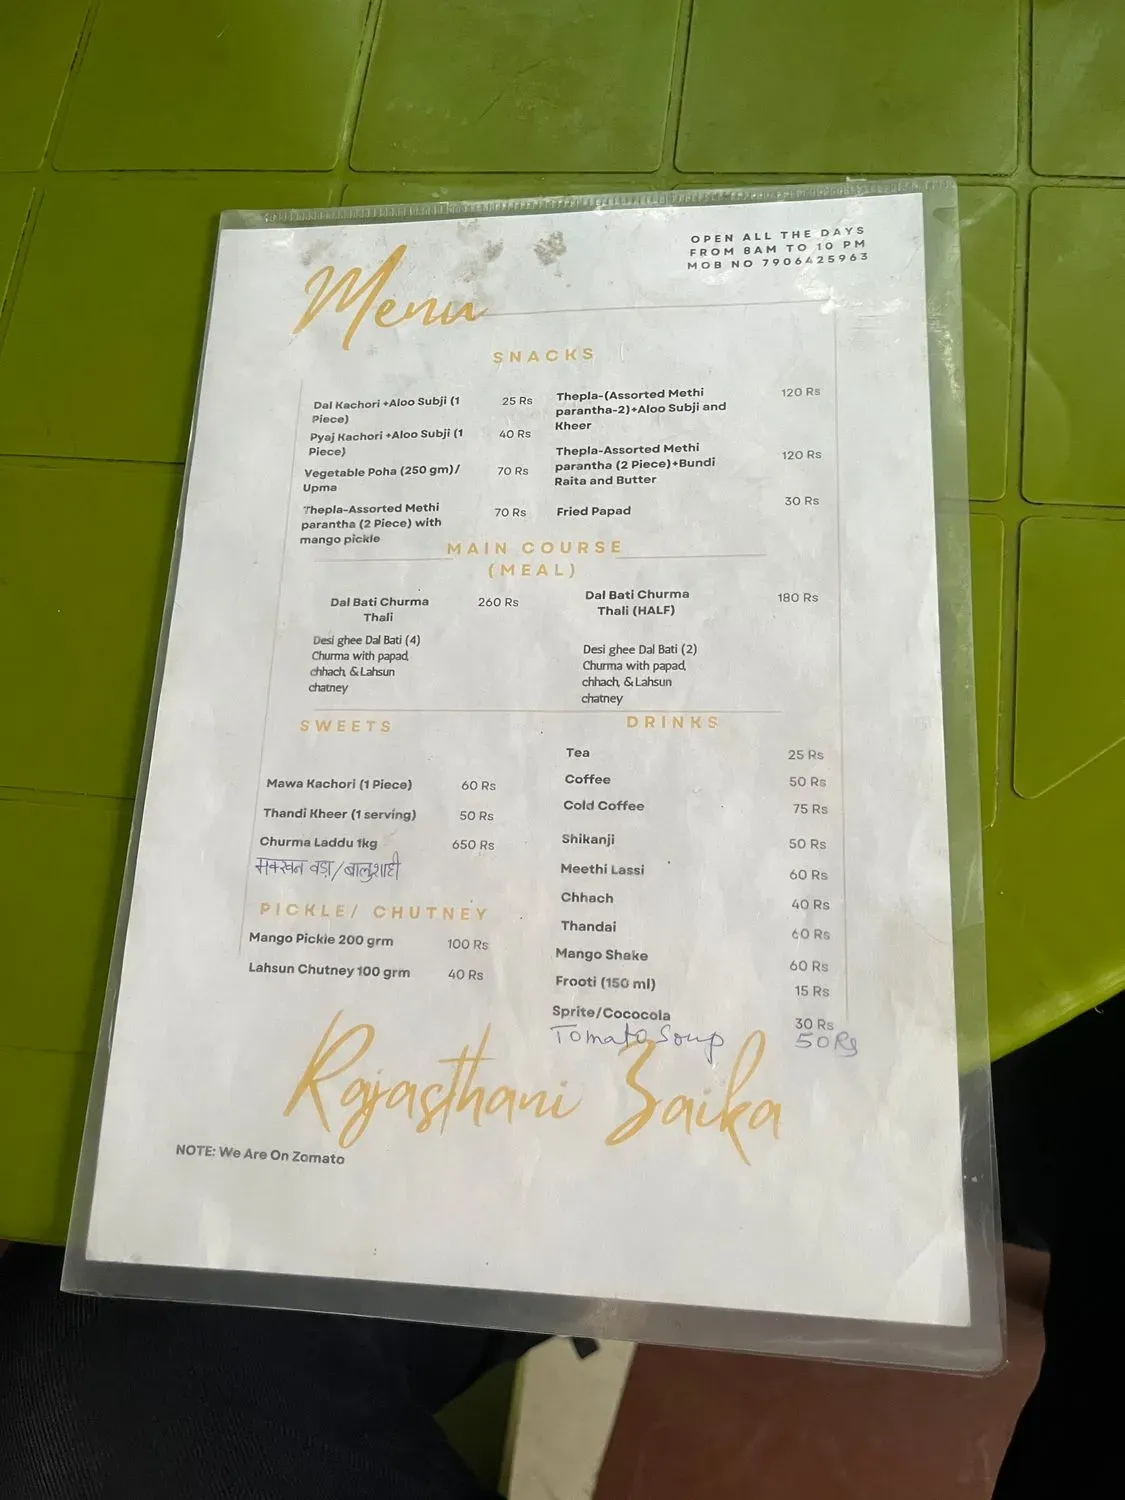 OPEN ALL THE DAYS
FROM 8AM TO 10 PM
MOB NO 7906425963
Menu
SNACKS
Dal Kachori +Aloo Subji (1 25 Rs
Piece)
Pyaj Kachori +Aloo Subji (1 40 Rs
Piece)
Vegetable Poha (250 gm)/ 70 Rs
Upma
Thepla-Assorted Methi 70 Rs
parantha (2 Piece) with
mango pickle
Thepla-(Assorted Methi 120 Rs
parantha-2)+Aloo Subji and
Kheer
Thepla-Assorted Methi
parantha (2 Piece)+Bundi 120 Rs
Raita and Butter
Fried Papad 30 Rs
MAIN COURSE
(MEAL)
Dal Bati Churma 260 Rs
Thali
Desi ghee Dal Bati (4)
Churma with papad,
chhach, & Lahsun
chatney
Dal Bati Churma 180 Rs
Thali (HALF)
Desi ghee Dal Bati (2)
Churma with papad,
chhach, & Lahsun
chatney
SWEETS
Mawa Kachori (1 Piece) 60 Rs
Thandi Kheer (1 serving) 50 Rs
Churma Laddu 1kg 650 Rs
मक्खन वड़ा/बालुशाही
PICKLE/ CHUTNEY
Mango Pickle 200 grm 100 Rs
Lahsun Chutney 100 grm 40 Rs
DRINKS
Tea 25 Rs
Coffee 50 Rs
Cold Coffee 75 Rs
Shikanji 50 Rs
Meethi Lassi 60 Rs
Chhach 40 Rs
Thandai 60 Rs
Mango Shake 60 Rs
Frooti (150 ml) 15 Rs
Sprite/Cococola 30 Rs
Tomato Soup 50 Rs
Rajasthani Zaika
NOTE: We Are On Zomato